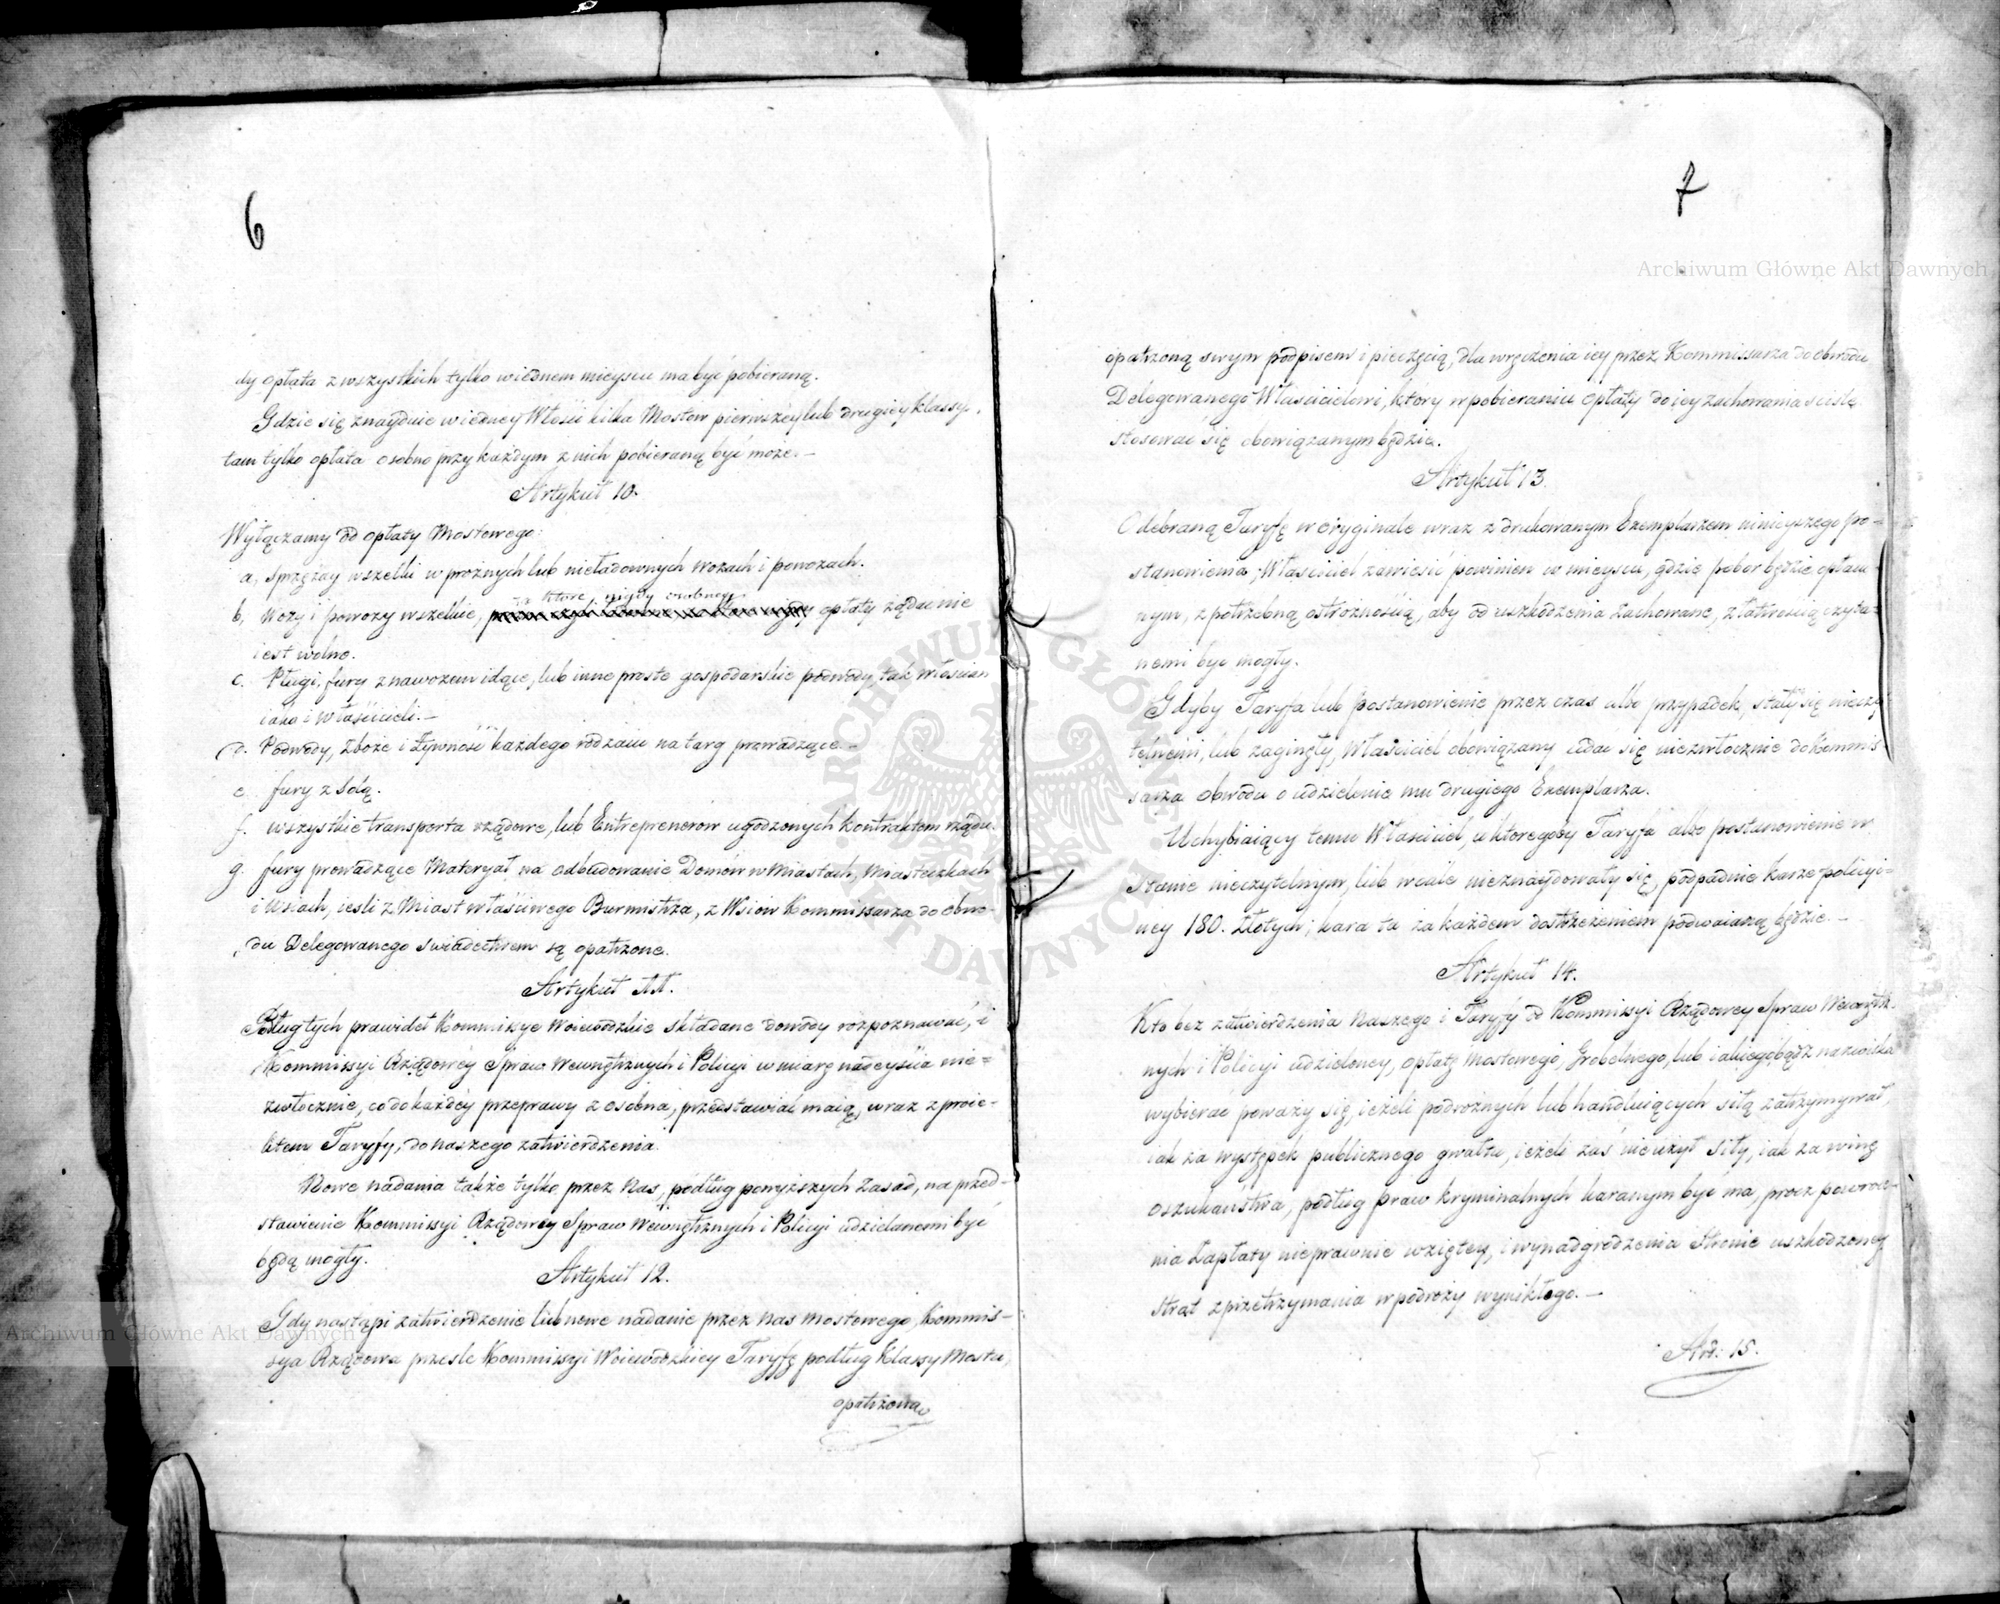 6
dy opłata z wszystkich tylko w iednem mieyscu ma być pobieraną.
Gdzie się znayduie w iedney Włości kilka Mostow pierwszey lub drugiey klassy,
tam tylko opłata osobno przy każdym z nich pobieraną być może. —
Artykuł 10.
Wyłączamy od opłaty Mostowego:
a, sprzężay wszelki w prożnych lub nieładownych wozach i powozach.
za ktore, nigdy osobney
b, Wozy i powozy wszelkie, opłaty żądać nie
iest wolno.
c. Pługi, fury z nawozem idące, lub inne proste gospodarskie podwody, tak włościan
iako i właścicieli. —
d. Podwody, zboże i żywność każdego rodzaiu na targ prowadzące. —
e. fury z solą.
f. wszystkie transporta rządowe, lub Entreprenerow ugodzonych kontraktem rządu.
g. fury prowadzące Materyał na odbudowanie Domów w Miastach, Miasteczkach
i Wsiach, iesli z Miast właściwego Burmistrza, z Wsiow Kommissarza do obwo-
du Delegowanego swiadectwem są opatrzone.
Artykuł 11.
Podług tych prawideł Kommissye Woiewodzkie składane dowody rozpoznawać, i
Kommissyi Rządowéy Spraw Wewnętrznych i Policyi w miarę nadeyścia nie=
zwłocznie, co do każdey przeprawy z osobna, przedstawiać maią, wraz z proie-
ktem Taryffy, do naszego zatwierdzenia.
Nowe nadania także tylko przez Nas, podług powyższych Zasad, na przed-
stawienie Kommissyi Rządowey Spraw Wewnętrznych i Policyi udzielanemi być
będą mogły.
Artykuł 12.
Gdy nastąpi zatwierdzenie lub nowe nadanie przez Nas mostowego, Kommis-
sya Rządowa prześle Kommissyi Woiewodzkiey Taryffę podług Klassy Mostu,
opatrzoną
7
opatrzoną swym podpisem i pieczęcią, dla wręczenia iey przez Kommissarza do obwodu
Delegowanego Właścicielowi, ktory w pobieraniu opłaty do iey zachowania sciśle
stosować się obowiązanym będzie.
Artykuł 13.
Odebraną Taryffę w oryginale wraz z drukowanym Exemplarzem ninieyszego po-
stanowienia, Właściciel zawiesić powinien w mieyscu, gdzie pobor będzie opłaca-
nym, z potrzebną ostrożnością, aby od uszkodzenia zachowane, z łatwością czyta=
nemi być mogły.
Gdyby Taryffa lub Postanowienie przez czas albo przypadek, stały się nieczy-
telnemi, lub zaginęły, Właściciel obowiązany udać się niezwłocznie do Kommis-
sarza Obwodu o udzielenie mu drugiego Exemplarza.
Uchybiaiący temu Właściciel, u ktoregoby Taryffa albo postanowienie w
Stanie nieczytelnym, lub wcale nieznaydowały się, podpadnie karze policyi-
ney 180. Złotych; kara ta za każdem dostrzeżeniem podwaianą będzie. —
Artykuł 14.
Kto bez zatwierdzenia Naszego i Taryffy od Kommissyi Rządowey Spraw Wewnętrz-
nych i Policyi udzieloney, opłatę mostowego, Grobelnego, lub iakiegobądź nazwiska
wybierać poważy się, ieżeli podrożnych lub handluiących siłą zatrzymywał,
iak za występek publicznego gwałtu, ieżeli zaś nieużył siły, iak za winę
oszukaństwa, podług praw kryminalnych karanym być ma, procz powroce-
nia Zapłaty nieprawnie wziętey, i wynadgrodzenia Stronie uszkodzoney
strat z przetrzymania w podroży wynikłego. —
Art: 15.
Archiwum Główne Akt Dawnych
Archiwum Główne Akt Dawnych
ARCHIWUM GŁÓWNE AKT DAWNYCH